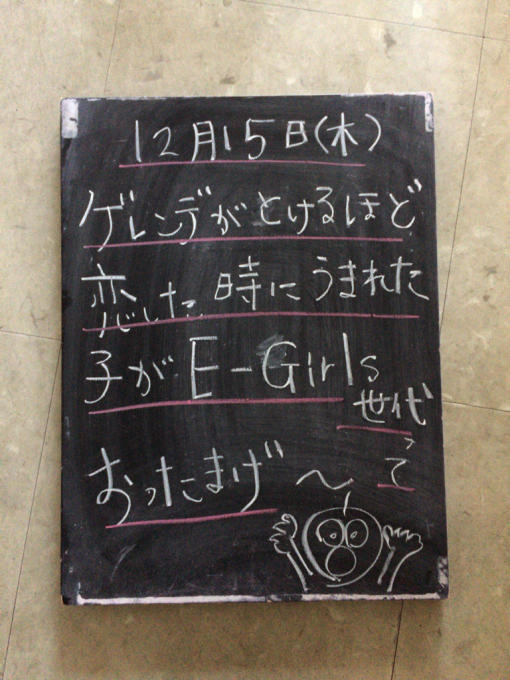 12月15日(木)
ゲレンデがとけるほど
恋した時にうまれた
子がE-Girls
世代って
おったまげ〜